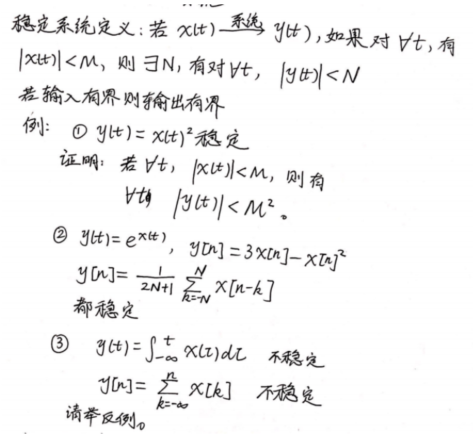 稳定系统定义:若 x(t) 系统→ y(t), 如果对 ∀t, 有
|x(t)|<M, 则 ∃N, 有对∀t, |y(t)|<N
若输入有界则输出有界
例: ① y(t)=x(t)² 稳定
证明: 若 ∀t, |x(t)|<M, 则有
∀t |y(t)|<M²。
② y(t)=e^{x(t)}, y[n]=3x[n]-x[n]²
y[n]=\frac{1}{2N+1} \sum_{k=-N}^{N} x[n-k]
都稳定
③ y(t)=∫_{-∞}^{t} x(τ)dτ 不稳定
y[n]=\sum_{k=-∞}^{n} x[k] 不稳定
请举反例。